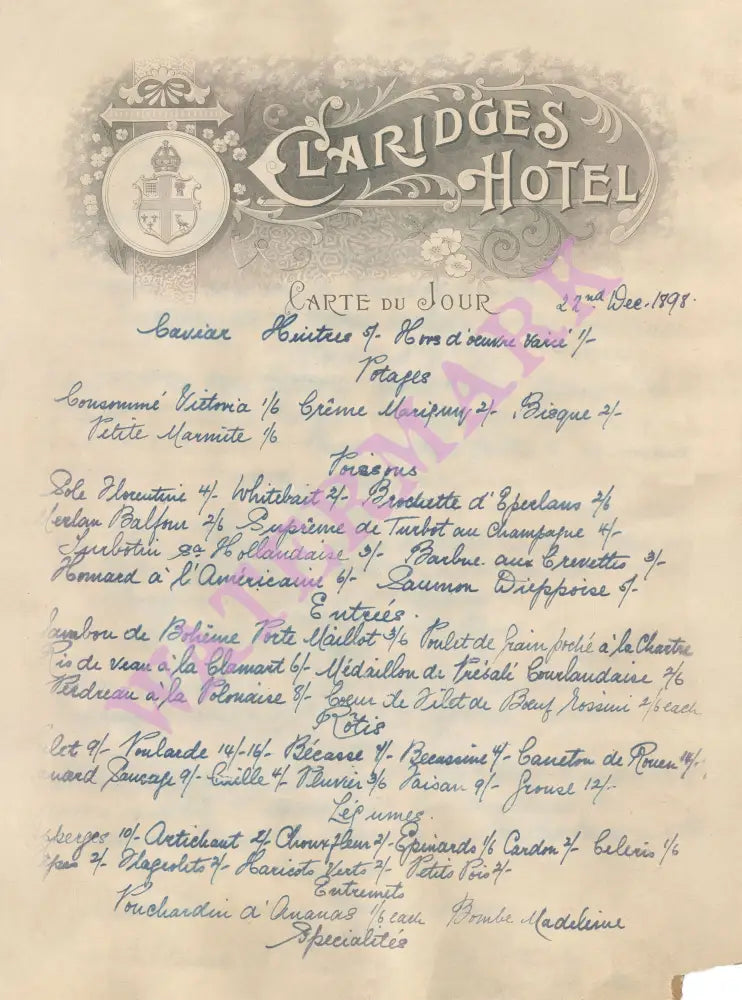 CLARIDGES
HOTEL
CARTE DU JOUR 22nd Dec. 1898.
Caviar Huitres 5/- Hors d'œuvre varié 1/-
Potages
Consommé Victoria 1/6 Crême Marigny 2/- Bisque 2/-
Petite Marmite 1/6
Poissons
Sole Florentine 4/- Whitebait 2/- Brochette d'Eperlans 2/6
erlan Balfour 2/6 Suprême de Turbot au Champagne 4/-
Turbotin Hollandaise 3/- Barbue aux Crevettes 3/-
Homard à l'Américaine 6/- Saumon Dieppoise 5/-
Entrées.
Jambon de Bohême Porte Maillot 3/6 Poulet de grain poché à la Chartre
Ris de veau à la Clamart 6/- Médaillon de Courlandaise 2/6
Perdreau à la Polonaise 8/- Coeur de Filet de Bœuf Rossini 2/6 each
Rôtis
let 9/- Poularde 14/-16/- Bécasse Becassine 4/- Caneton de Rouen
anard Sauvage 9/- Caille 4/- Pluvier 3/6 Faisan 9/- Grouse 12/-
Légumes.
sperges 10/- Artichaut 2/- Choux fleur 2/- Epinards 1/6 Cardon 2/- Celeris 1/6
èpes 2/- Flageolets 2/- Haricots Verts 2/- Petits Pois 2/-
Entremets
Pouchardin d'Ananas 1/6 each Bombe Madeleine
Specialités
WATERMARK